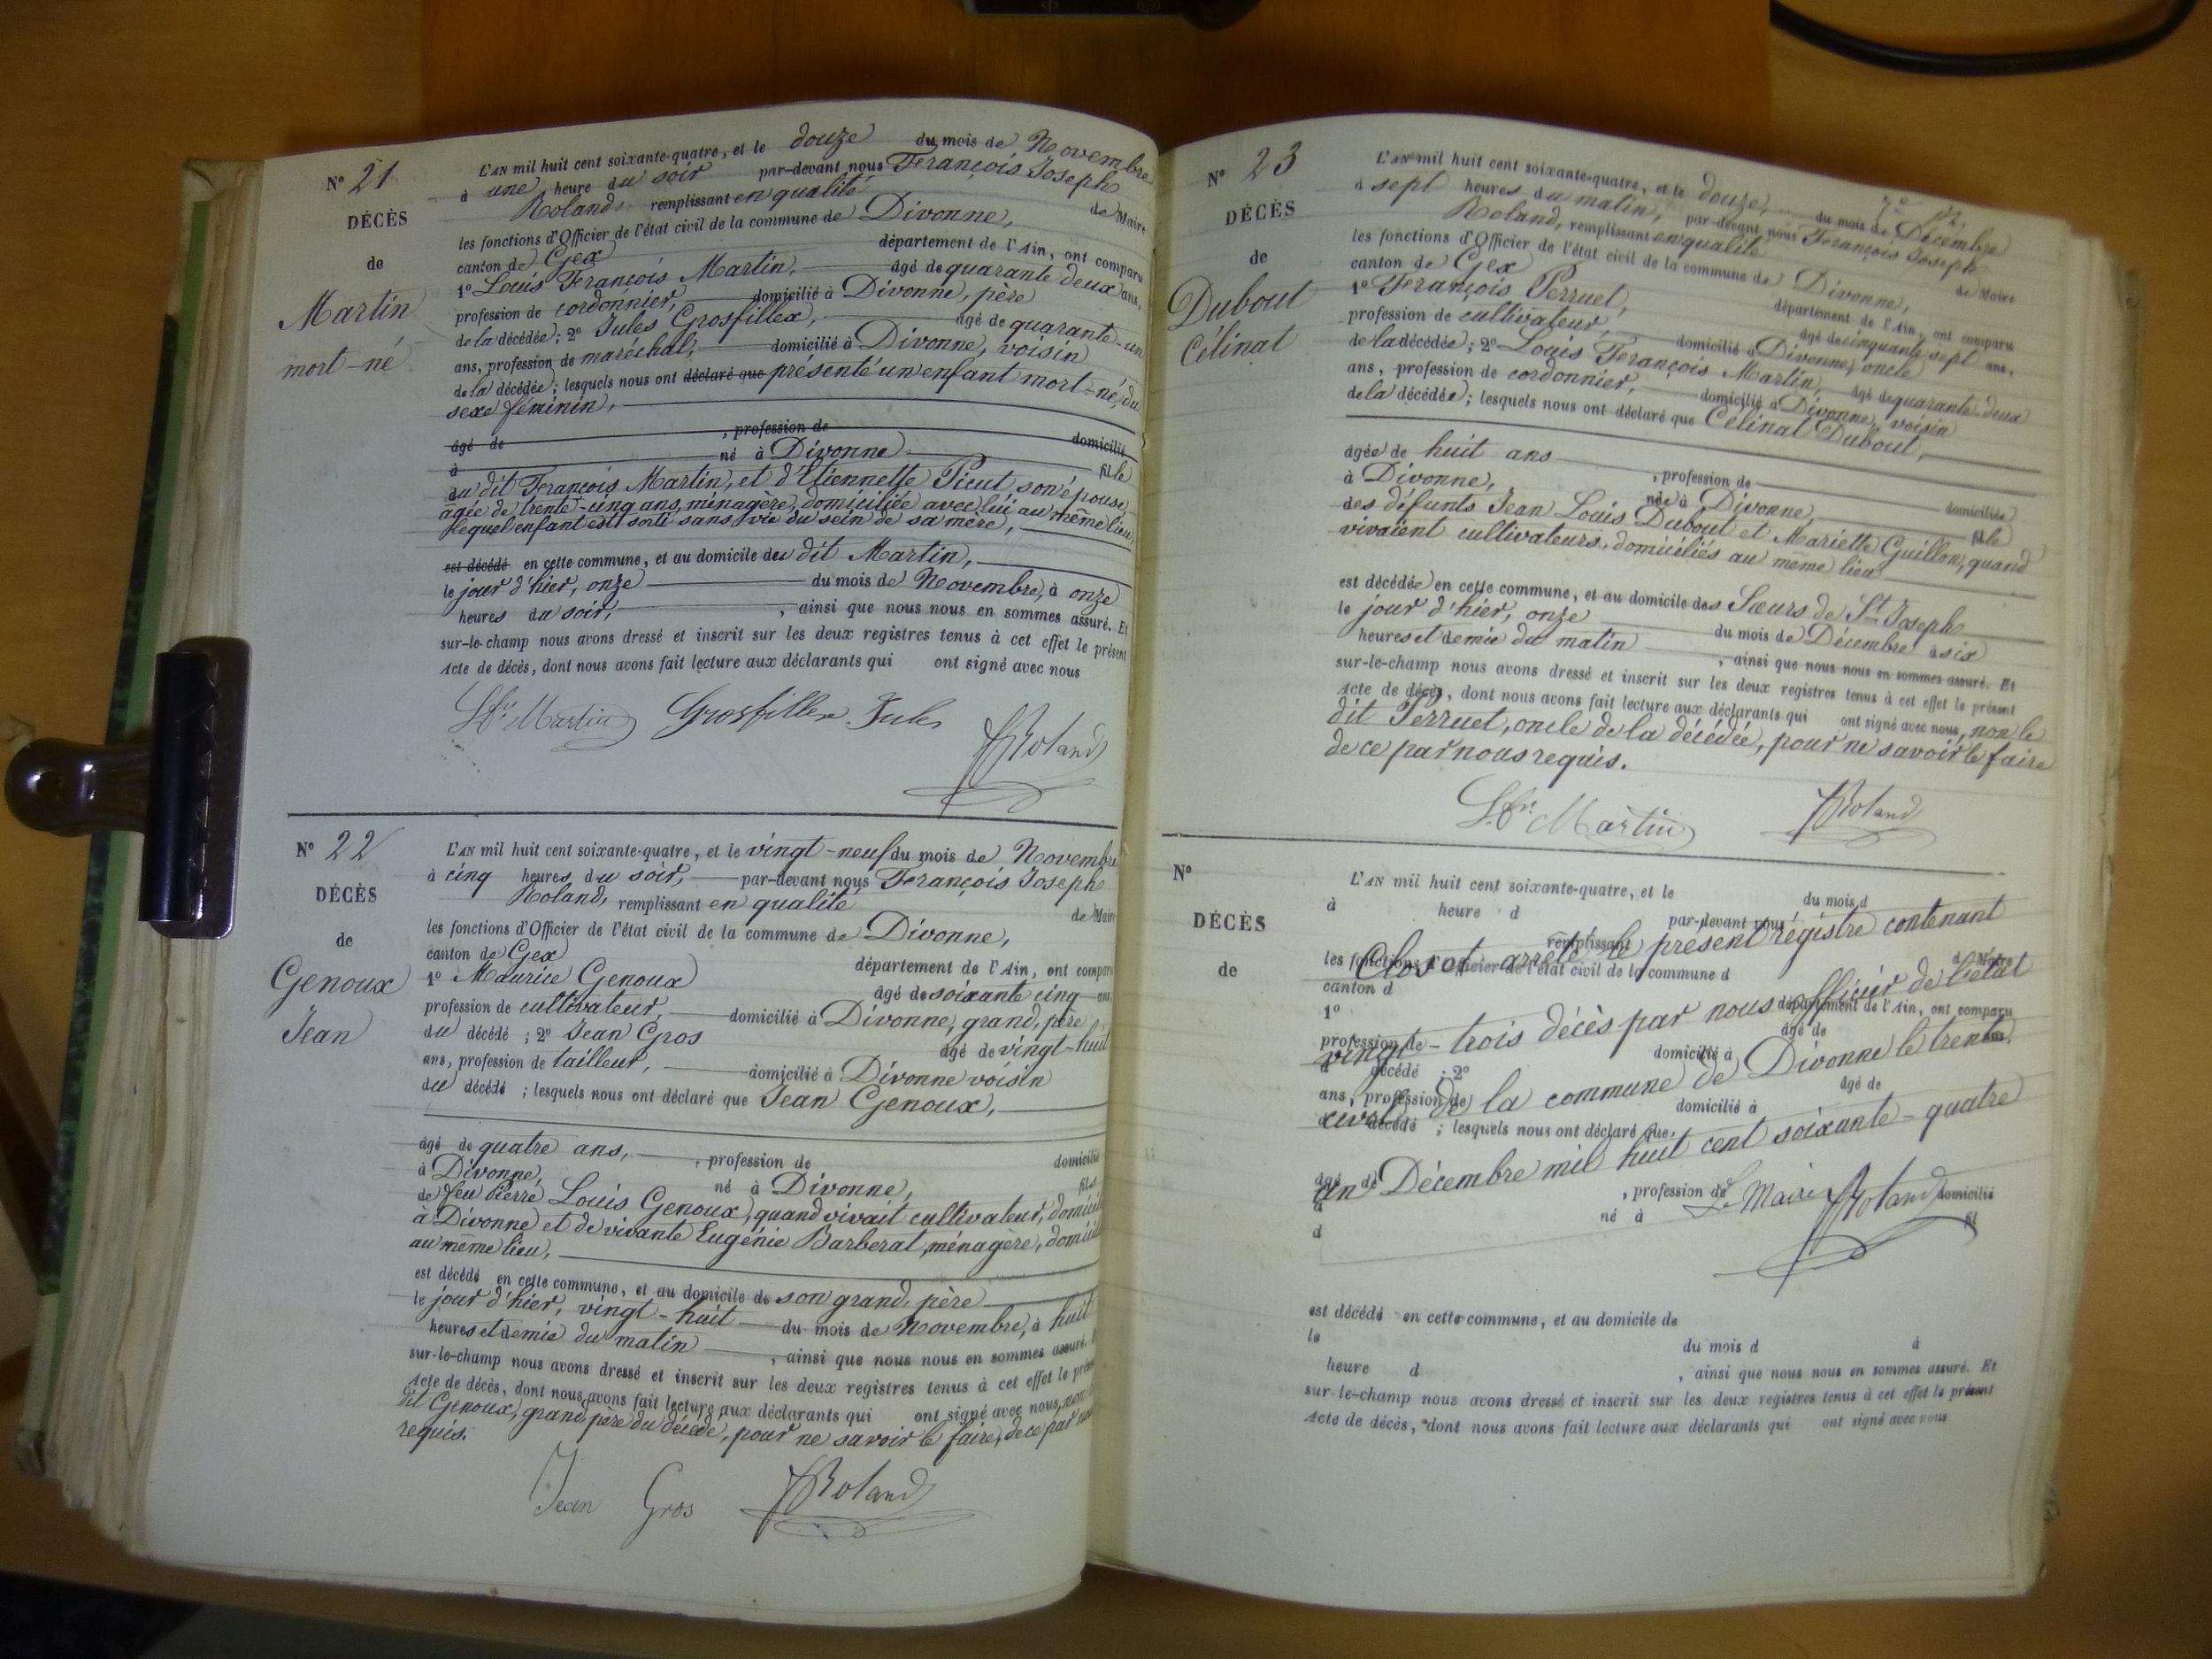 N° 21
DÉCÈS
de
Martin
mort-né
L'AN mil huit cent soixante-quatre, et le douze du mois de Novembre
à une heure du soir par-devant nous François Joseph
Roland, remplissant en qualité de Maire
les fonctions d'Officier de l'état civil de la commune de Divonne,
canton de Gex département de l'Ain, ont comparu
1° Louis François Martin, âgé de quarante deux ans,
profession de cordonnier, domicilié à Divonne, père
de la décédée; 2° Jules Grosfillex, âgé de quarante-un
ans, profession de maréchal, domicilié à Divonne, voisin
de la décédée; lesquels nous ont déclaré que présenté un enfant mort-né, du
sexe féminin,
âgé de , profession de domicilié
à né à Divonne fille
du dit François Martin, et d'Etiennette Picut son épouse,
âgée de trente-cinq ans, ménagère, domiciliée avec lui au même lieu,
lequel enfant est sorti sans vie du sein de sa mère,
est décédé en cette commune, et au domicile du dit Martin,
le jour d'hier, onze du mois de Novembre, à onze
heures du soir, , ainsi que nous nous en sommes assuré. Et
sur-le-champ nous avons dressé et inscrit sur les deux registres tenus à cet effet le présent
Acte de décès, dont nous avons fait lecture aux déclarants qui ont signé avec nous
Ls fs Martin Grosfillex Jules
JRoland
N° 22
DÉCÈS
de
Genoux
Jean
L'AN mil huit cent soixante-quatre, et le vingt-neuf du mois de Novembre
à cinq heures du soir, par-devant nous François Joseph
Roland, remplissant en qualité de Maire
les fonctions d'Officier de l'état civil de la commune de Divonne,
canton de Gex département de l'Ain, ont comparu
1° Maurice Genoux âgé de soixante cinq ans
profession de cultivateur, domicilié à Divonne, grand, père
du décédé ; 2° Jean Gros âgé de vingt-huit
ans, profession de tailleur, domicilié à Divonne voisin
du décédé ; lesquels nous ont déclaré que Jean Genoux,
âgé de quatre ans, , profession de domicilié
à Divonne, né à Divonne, fils
de feu Pierre Louis Genoux, quand vivait cultivateur, domicilié
à Divonne et de vivante Eugénie Barberat, ménagère, domicilié
au même lieu,
est décédé en cette commune, et au domicile de son grand, père
le jour d'hier, vingt-huit du mois de Novembre, à huit
heures et demie du matin , ainsi que nous nous en sommes assuré.
sur-le-champ nous avons dressé et inscrit sur les deux registres tenus à cet effet le présent
Acte de décès, dont nous avons fait lecture aux déclarants qui ont signé avec nous, non
dit Genoux, grand, père du décédé, pour ne savoir le faire, de ce par nous
requis.
Jean Gros JRoland
N° 23
DÉCÈS
de
Dubout
Célinat
L'AN mil huit cent soixante-quatre, et le douze, du mois de Décembre
à sept heures du matin, par-devant nous François Joseph
Roland, remplissant en qualité de Maire
les fonctions d'Officier de l'état civil de la commune de Divonne,
canton de Gex département de l'Ain, ont comparu
1° François Perruet, âgé de cinquante sept ans,
profession de cultivateur, domicilié à Divonne, oncle
de la décédée; 2° Louis François Martin, âgé de quarante-deux
ans, profession de cordonnier, domicilié à Divonne, voisin
de la décédée; lesquels nous ont déclaré que Célinat Dubout,
âgée de huit ans , profession de domiciliée
à Divonne, née à Divonne, fille
des défunts Jean Louis Dubout et Mariette Guillon, quand
vivaient cultivateurs, domiciliés au même lieu
est décédée en cette commune, et au domicile des Sœurs de St Joseph
le jour d'hier, onze du mois de Décembre à six
heures et demie du matin , ainsi que nous nous en sommes assuré. Et
sur-le-champ nous avons dressé et inscrit sur les deux registres tenus à cet effet le présent
Acte de décès, dont nous avons fait lecture aux déclarants qui ont signé avec nous, non le
dit Perruet, oncle de la décédée, pour ne savoir le faire
de ce par nous requis.
Ls fs Martin JRoland
N°
DÉCÈS
de
L'AN mil huit cent soixante-quatre, et le du mois d
à heure d par-devant nous
remplissant d Maire
Clos et arrêté le présent régistre contenant
les fonctions d'Officier de l'état civil de la commune d
canton d département de l'Ain, ont comparu
1° âgé de ans,
vingt-trois décès par nous officier de l'état
profession de domicilié à
d décédé ; 2° âgé de
civil de la commune de Divonne le trente
ans, profession de domicilié à
d décédé ; lesquels nous ont déclaré que
un Décembre mil huit cent soixante-quatre
âgé de , profession de domicilié
à né à fil
d
Le Maire JRoland
est décédé en cette commune, et au domicile de
le du mois d à
heure d , ainsi que nous nous en sommes assuré. Et
sur-le-champ nous avons dressé et inscrit sur les deux registres tenus à cet effet le présent
Acte de décès, dont nous avons fait lecture aux déclarants qui ont signé avec nous